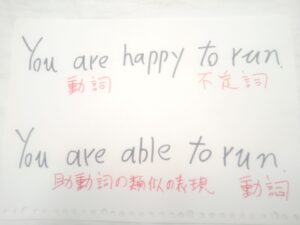 You are happy to run.
動詞 不定詞
You are able to run.
助動詞の類似の表現 動詞